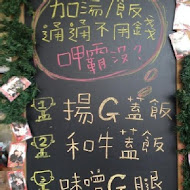 加湯/飯
通通不用錢
呷霸沒?
1 揚G蓋飯
2 和牛蓋飯
3 味噌G腿